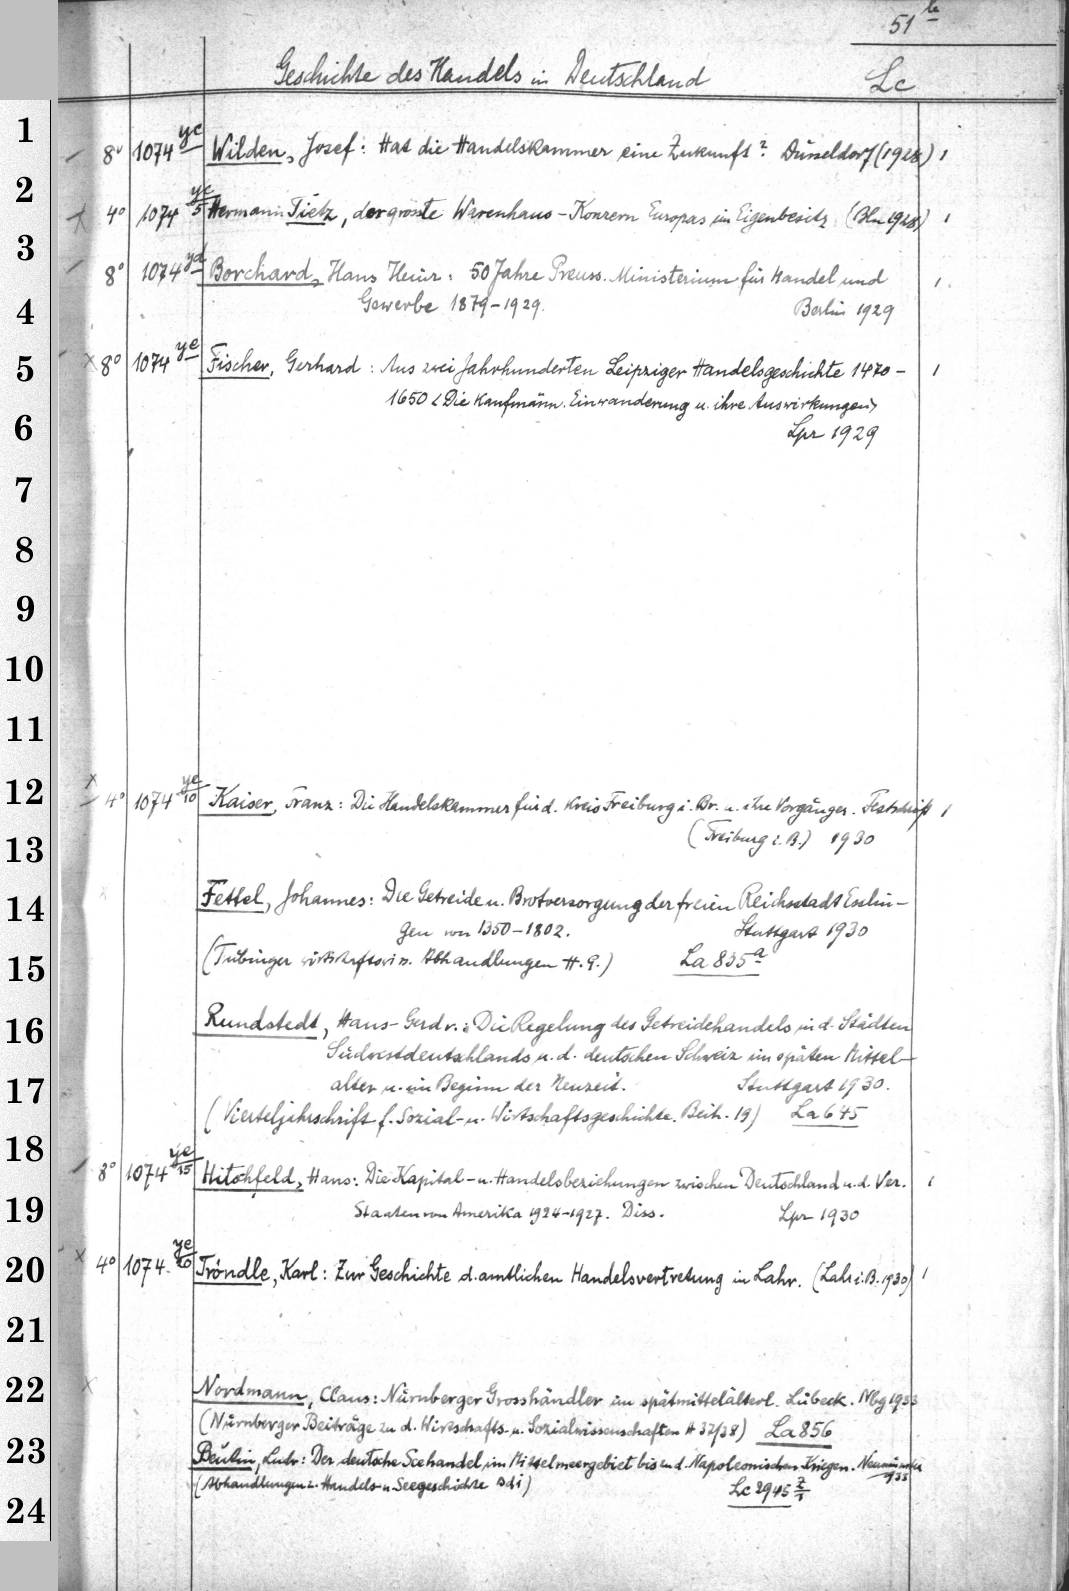 51 le
Geschichte des Handels in Deutschland Lc
1
8° 1074 yc Wilden, Josef: Hat die Handelskammer eine Zukunft? Düsseldorf (1928) 1
2
4° 1074 yc/5 Hermann Tietz, der grösste Warenhaus-Konzern Europas im Eigenbesitz (Bln 1928) 1
3
8° 1074 yd Borchard, Hans Heinr.: 50 Jahre Preuss. Ministerium für Handel und 1
4 Gewerbe 1879-1929. Berlin 1929
5
8° 1074 ye Fischer, Gerhard: Aus zwei Jahrhunderten Leipziger Handelsgeschichte 1470- 1
1650 <Die Kaufmänn. Einwanderung u. ihre Auswirkungen>
6 Lpz 1929
7
8
9
10
11
12
4° 1074 ye/10 Kaiser, Franz: Die Handelskammer für d. Kreis Freiburg i. Br. u. ihre Vorgänger. Festschrift 1
13 (Freiburg i. B.) 1930
14 Fettel, Johannes: Die Getreide u. Brotversorgung der freien Reichsstadt Esslin-
gen von 1350-1802. Stuttgart 1930
15 (Tübinger wirtschaftswiss. Abhandlungen H. 9.) La 835 a
16 Rundstedt, Hans-Gerd v.: Die Regelung des Getreidehandels in d. Städten
Südwestdeutschlands u. d. deutschen Schweiz im späten Mittel-
17 alter u. im Beginn der Neuzeit. Stuttgart 1930.
(Vierteljahrschrift f. Sozial- u. Wirtschaftsgeschichte. Beih. 19) La 645
18
8° 1074 ye/15 Hitschfeld, Hans: Die Kapital- u. Handelsbeziehungen zwischen Deutschland u. d. Ver. 1
19 Staaten von Amerika 1924-1927. Diss. Lpz 1930
20
4° 1074 ye/20 Tröndle, Karl: Zur Geschichte d. amtlichen Handelsvertretung in Lahr. (Lahr i. B. 1930) 1
21
22 Nordmann, Claus: Nürnberger Grosshändler im spätmittelalterl. Lübeck. Nbg 1933
(Nürnberger Beiträge zu d. Wirtschafts- u. Sozialwissenschaften H 37/38) La 856
23 Beutin, Ludw: Der deutsche Seehandel im Mittelmeergebiet bis zu d. Napoleonischen Kriegen. Neumünster 1933
(Abhandlungen z. Handels- u. Seegeschichte) Lc 2945 z/1
24